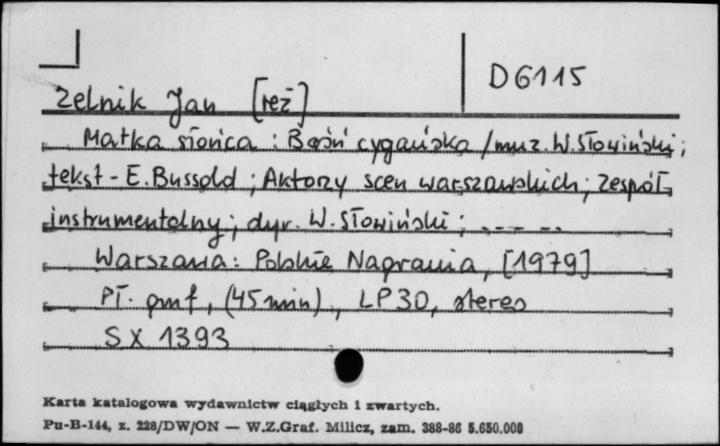 D6115
Zelnik Jan [reż]
Matka słońca : Baśń cygańska / muz. W. Słowiński ;
tekst - E. Bussold ; Aktorzy scen warszawskich ; Zespół
instrumentalny ; dyr. W. Słowiński ; --- --
Warszawa : Polskie Nagrania, [1979]
Pł. gmf, (45 min)., LP 30, stereo
SX 1393
Karta katalogowa wydawnictw ciągłych i zwartych.
Pu-B-144, z. 228/DW/ON — W.Z.Graf. Milicz, zam. 388-86 5.650.000